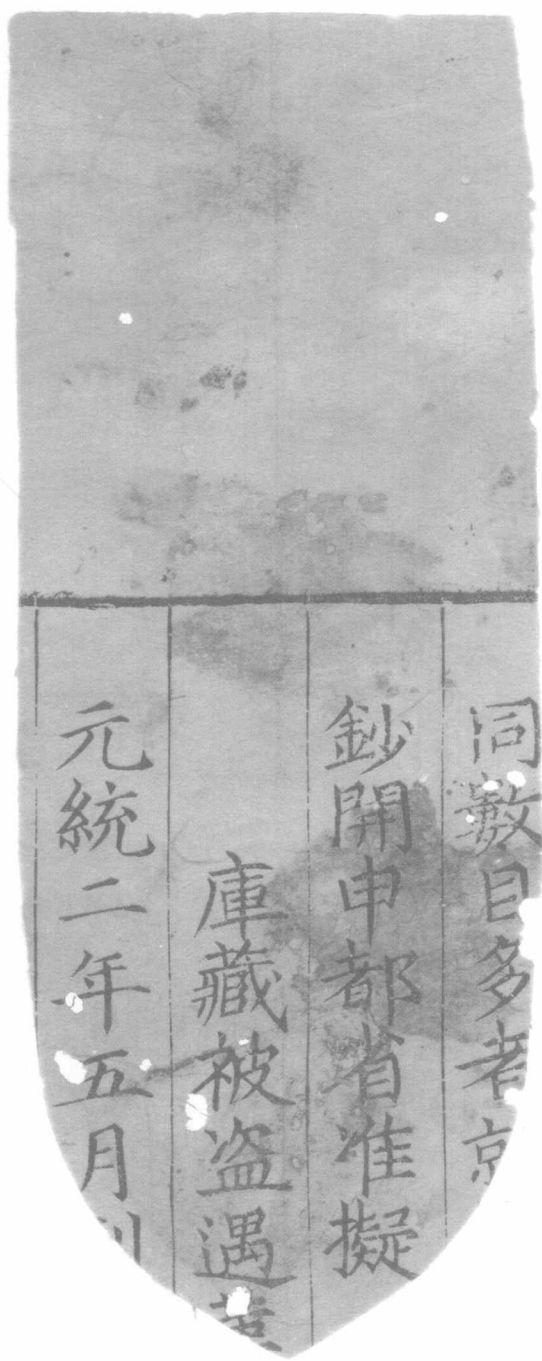 同數目多者京
鈔開申都省准擬
庫藏被盗遇革
元統二年五月刑